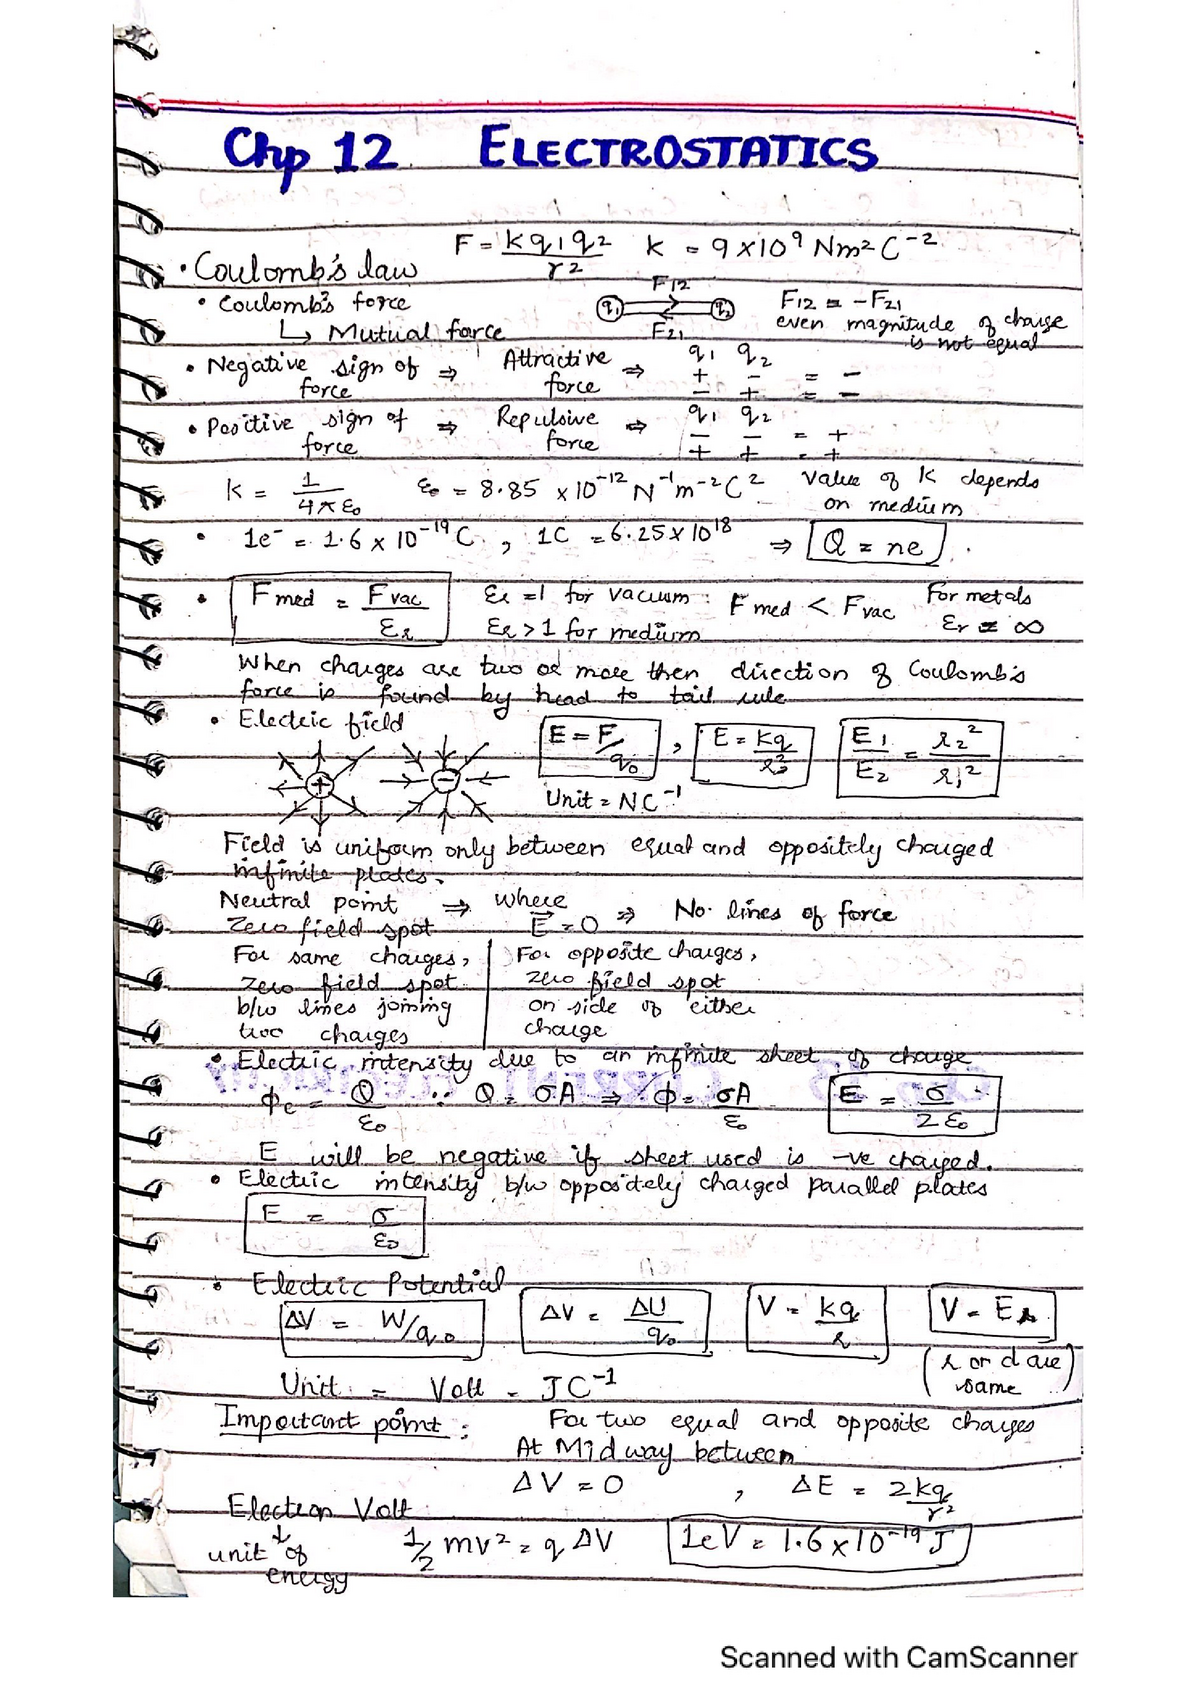 Chp 12 ELECTROSTATICS
• Coulomb's law F = kq1q2/r2 k = 9×10^9 Nm2C^-2
• Coulomb's force F12 q1 q2 F21 F12 = -F21
↳ Mutual force even magnitude of charge is not equal
• Negative sign of force ⇒ Attractive force ⇒ q1 q2
+ - = -
- + = -
• Positive sign of force ⇒ Repulsive force ⇒ q1 q2
- - = +
+ + = +
k = 1/4πε0 ε0 = 8.85 × 10^-12 N^-1m^-2C^2 value of k depends on medium
• 1e- = 1.6 × 10^-19 C , 1C = 6.25×10^18 ⇒ Q = ne .
• Fmed = Fvac/εr εr = 1 for vacuum : Fmed < Fvac For metals
εr > 1 for medium εr = ∞
When charges are two or more then direction of Coulomb's
force is found by head to tail rule
• Electric field E = F/q0 , E = kq/r2 E1/E2 = r2^2/r1^2
+ - Unit = NC^-1
Field is uniform only between equal and oppositely charged
infinite plates.
Neutral point ⇒ where ⇒ No. lines of force
Zero field spot E = 0
For same charges,
zero field spot
b/w lines joining
two charges
For opposite charges,
zero field spot
on side of either
charge
• Electric intensity due to an infinite sheet of charge
ϕe = Q/ε0 ∵ Q = σA ⇒ ϕ = σA/ε0 E = σ/2ε0
E will be negative if sheet used is -ve charged.
• Electric intensity b/w oppositely charged parallel plates
E = σ/ε0
• Electric Potential
ΔV = W/q0 ΔV = ΔU/q0 V = kq/r V = Er
(r or d are same)
Unit = Volt = JC^-1
Important point : For two equal and opposite charges
At Midway between
ΔV = 0 , ΔE = 2kq/r2
Electron Volt
↓
unit of energy 1/2 mv2 = qΔV 1eV = 1.6×10^-19 J
Scanned with CamScanner